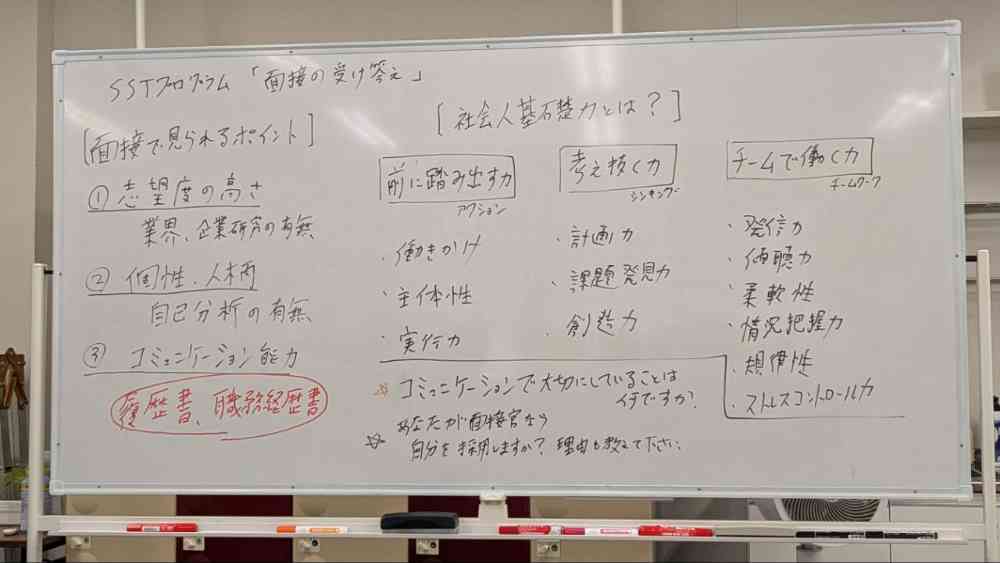 SSTプログラム「面接の受け答え」
[面接で見られるポイント]
① 志望度の高さ
業界、企業研究の有無
② 個性、人柄
自己分析の有無
③ コミュニケーション能力
履歴書、職務経歴書
[社会人基礎力とは？]
前に踏み出す力
アクション
・働きかけ
・主体性
・実行力
考え抜く力
シンキング
・計画力
・課題発見力
・創造力
チームで働く力
チームワーク
・発信力
・傾聴力
・柔軟性
・情況把握力
・規律性
・ストレスコントロール力
☆ コミュニケーションで大切にしていることは
何ですか？
☆ あなたが面接官なら
自分を採用しますか？理由も教えて下さい。